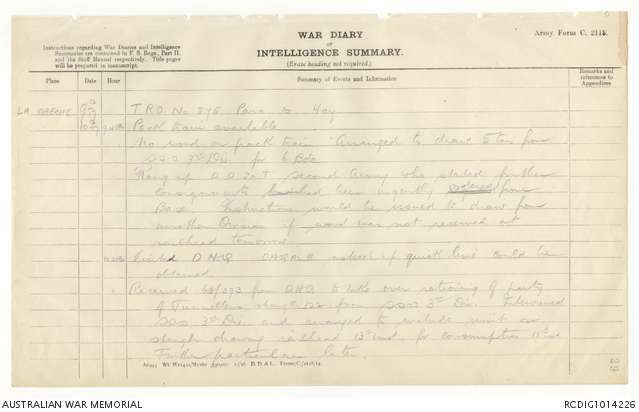 WAR DIARY
OR
INTELLIGENCE SUMMARY.
(Erase heading not required.)
Army Form C. 2118.
Instructions regarding War Diaries and Intelligence
Summaries are contained in F. S. Regs., Part II.
and the Staff Manual respectively. Title pages
will be prepared in manuscript.
Place Date Hour Summary of Events and Information Remarks and references to Appendices
LA CRECHE 9th T.R.O. No 875 Para
10th Pack train available
No word on pack train. Arranged to draw 5 ton from
S.S.O 3rd Div. for 6 Bde
Rang up Second Army who stated further
consignments had been urgently ordered from
Base. Instructions would be issued to draw from
another Division if word was not received at
railhead tomorrow
Visited DHQ instead of quick lime could be
obtained
Received from DHQ to take over rationing of party
of Tunnellers strength 122 from SSO 3rd Div. Interviewed
SSO 3rd Div. and arranged to include unit on
strength drawing railhead 13th inst. for consumption inst
Further particulars later.
29
AUSTRALIAN WAR MEMORIAL
RCDIG1014226